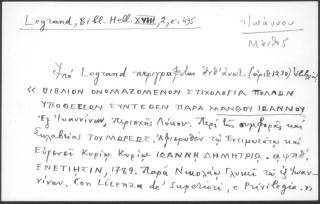 Legrand, Bibl. Hell. XVIII, 2, σ. 495
Ἰωάννου
Μάνθος
Ὑπὸ Legrand περιγράφεται (ἀριθ. 1230)
« ΒΙΒΛΙΟΝ ΟΝΟΜΑΖΟΜΕΝΟΝ ΣΤΙΧΟΛΟΓΙΑ ΠΟΛΛΩΝ
ΥΠΟΘΕΣΕΩΝ ΣΥΝΤΕΘΕΝ ΠΑΡΑ ΜΑΝΘΟΥ ΙΩΑΝΝΟΥ
ἐξ Ἰωαννίνων, περιοχῆς Περὶ τῆς συμφορᾶς καὶ
Σκλαβείας ΤΟΥ ΜΩΡΕΩΣ. Ἀφιερωθὲν τῷ Ἐντιμοτάτῳ καὶ
Εὐγενεῖ Κυρίῳ Κυρίῳ ΙΩΑΝΝΗ ΔΗΜΗΤΡΙΩ. αψπθ.
ΕΝΕΤΙΗΣΙΝ, 1789. Παρὰ Νικολάῳ Γλυκεῖ τῷ ἐξ Ἰωαν-
νίνων. Con Licenza de' Superiori, e Privilegio. »